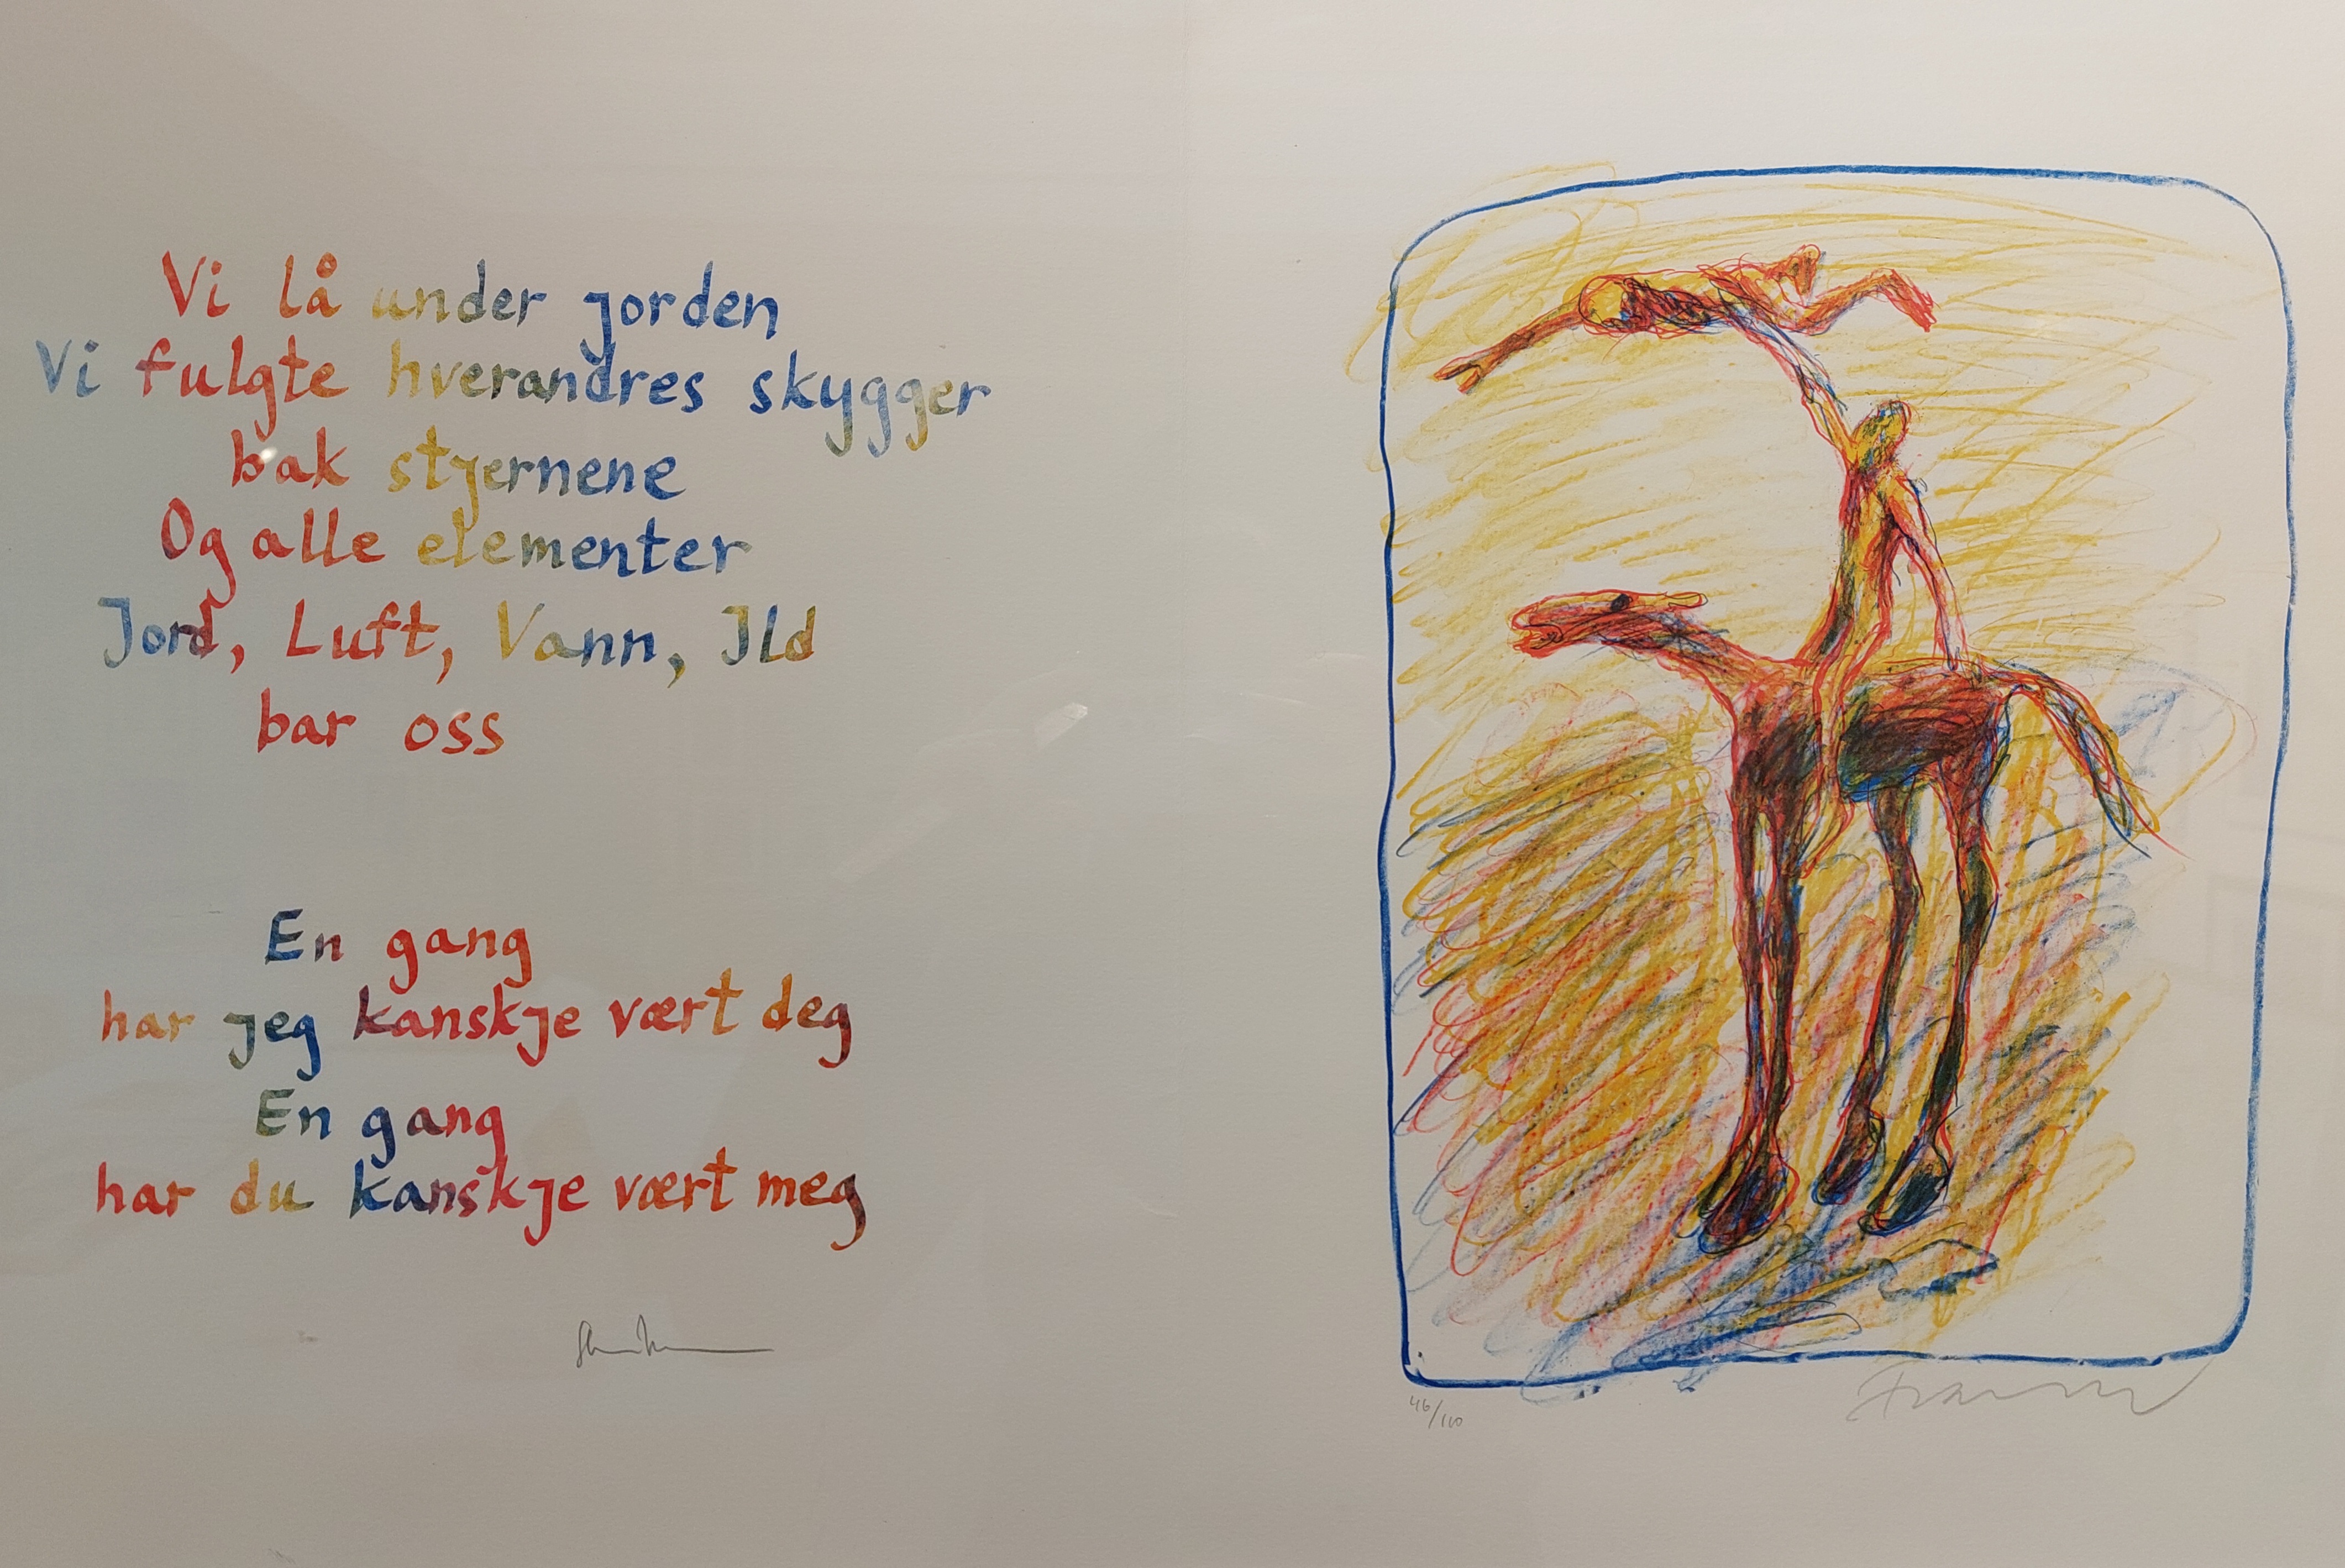 Vi lå under jorden
Vi fulgte hverandres skygger
bak stjernene
Og alle elementer
Jord, Luft, Vann, Ild
bar oss
En gang
har jeg kanskje vært deg
En gang
har du kanskje vært meg
46/110